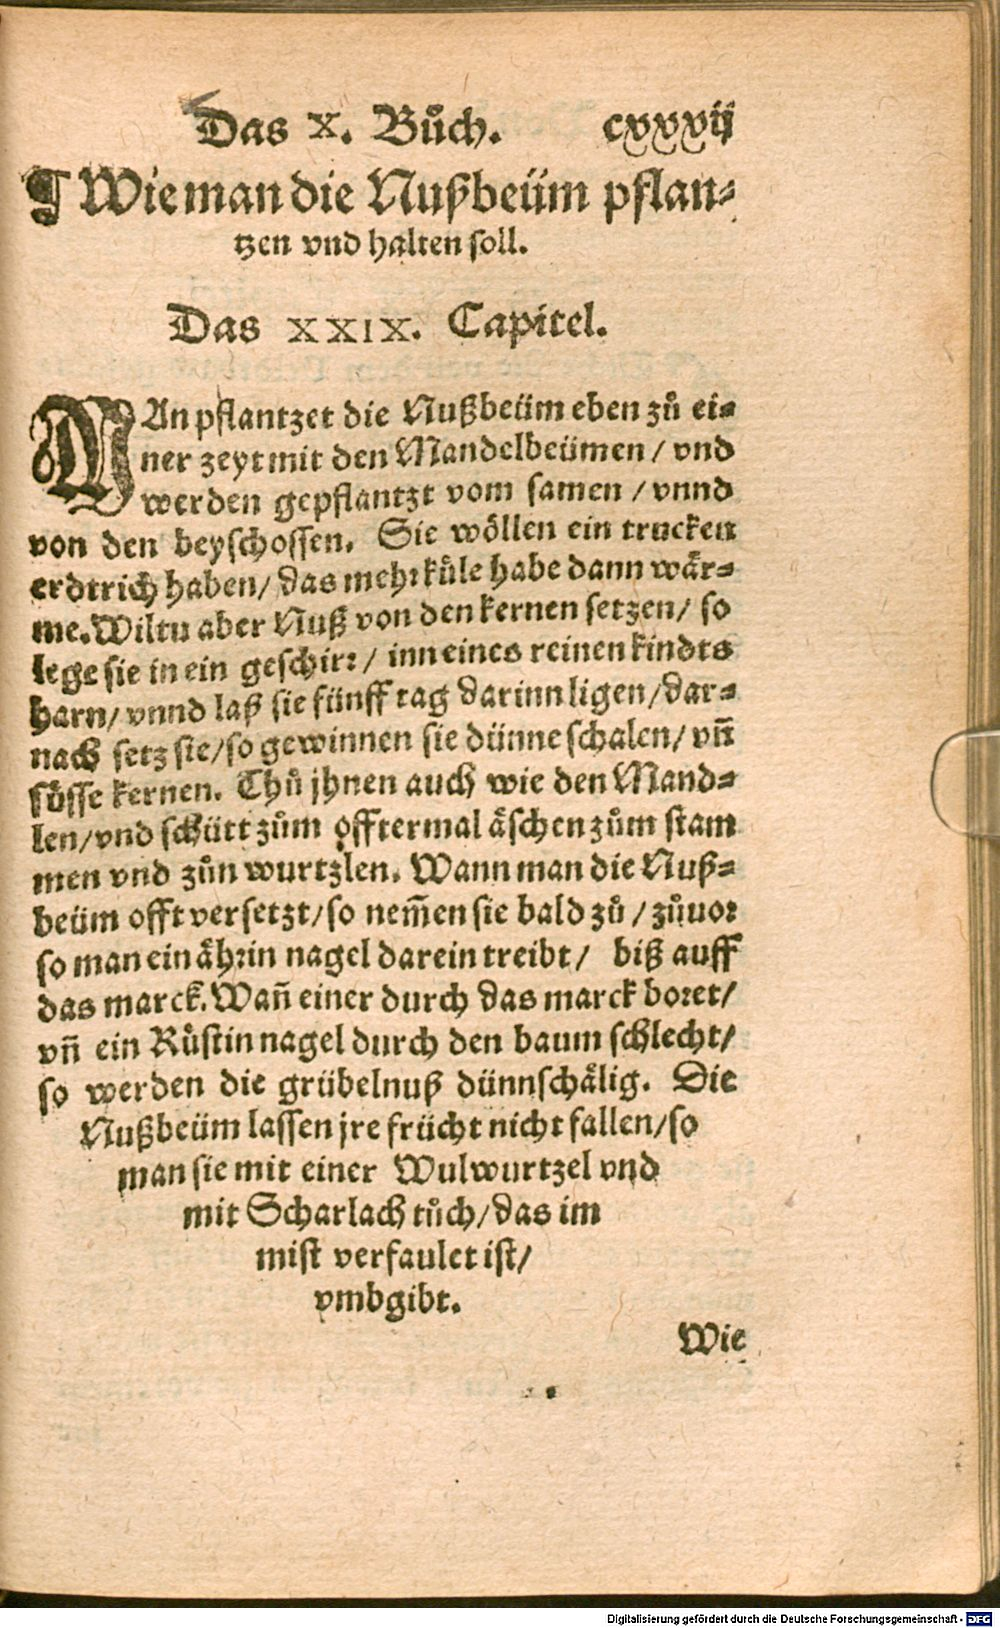 Das X. Bůch. cxxxvij
¶ Wie man die Nußbeüm pflan⸗
tzen vnd halten soll.
Das XXIX. Capitel.
MAn pflantzet die Nußbeüm eben zů ei⸗
ner zeyt mit den Mandelbeümen / vnd
werden gepflantzt vom samen / vnnd
von den beyschossen. Sie wöllen ein trucken
erdtrich haben / das mehr kůle habe dann wär⸗
me. Wiltu aber Nuß von den kernen setzen / so
lege sie in ein geschirr / inn eines reinen kindts
harn / vnnd laß sie fünff tag darinn ligen / dar⸗
nach setz sie / so gewinnen sie dünne schalen / vñ
sůsse kernen. Thů jhnen auch wie den Mand⸗
len / vnd schütt zům offtermal äschen zům stam
men vnd zůn wurtzlen. Wann man die Nuß⸗
beüm offt versetzt / so nem̃en sie bald zů / zůuor
so man ein ährin nagel darein treibt / biß auff
das marck. Wañ einer durch das marck boret /
vñ ein Růstin nagel durch den baum schlecht /
so werden die grübelnuß dünnschälig. Die
Nußbeüm lassen jre frücht nicht fallen / so
man sie mit einer Wulwurtzel vnd
mit Scharlach tůch / das im
mist verfaulet ist /
vmbgibt.
Wie
Digitalisierung gefördert durch die Deutsche Forschungsgemeinschaft - DFG